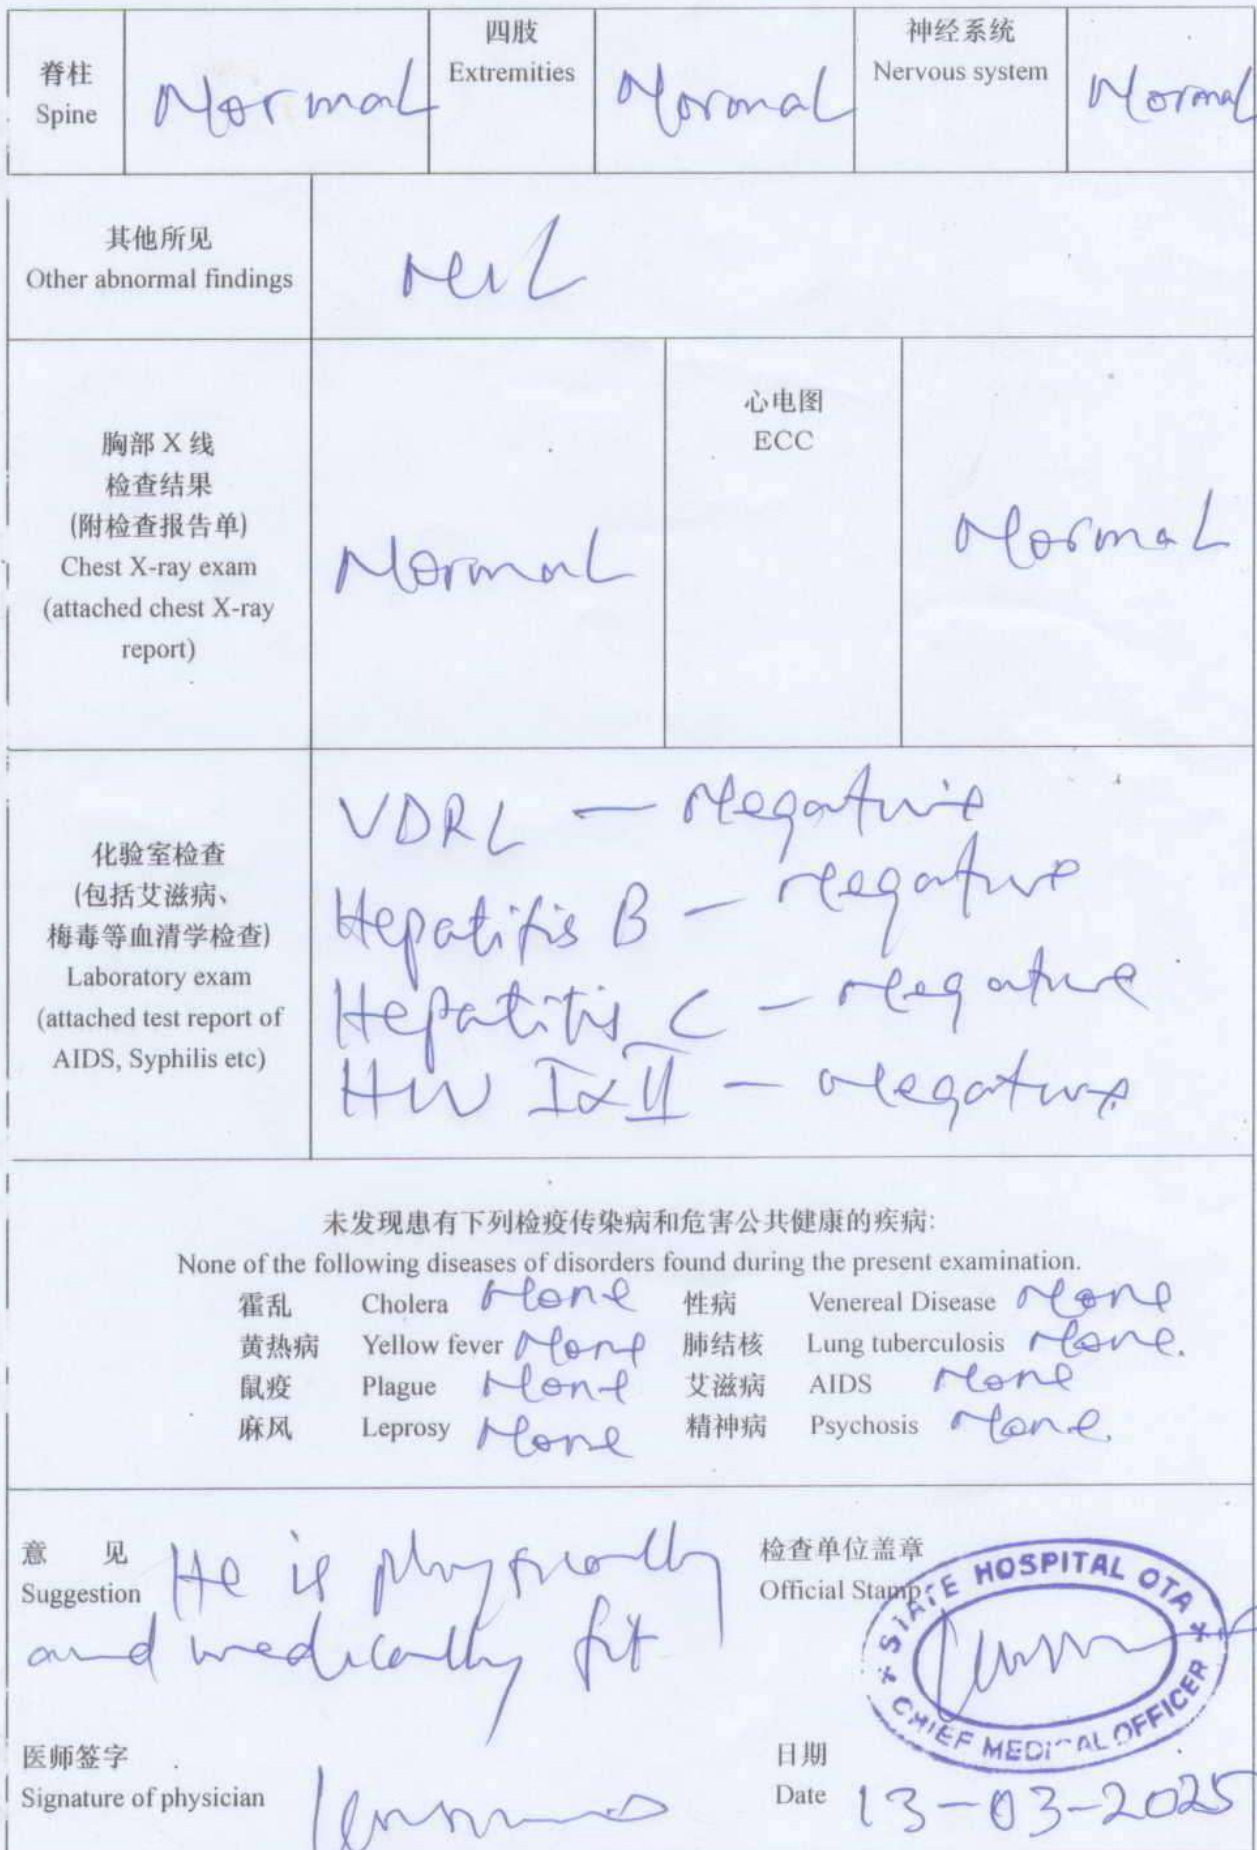 脊柱
Spine
Normal
四肢
Extremities
Normal
神经系统
Nervous system
Normal
其他所见
Other abnormal findings
Nil
胸部 X 线
检查结果
(附检查报告单)
Chest X-ray exam
(attached chest X-ray
report)
Normal
心电图
ECC
Normal
化验室检查
(包括艾滋病、
梅毒等血清学检查)
Laboratory exam
(attached test report of
AIDS, Syphilis etc)
VDRL — Negative
Hepatitis B — Negative
Hepatitis C — Negative
HIV I & II — Negative
未发现患有下列检疫传染病和危害公共健康的疾病:
None of the following diseases of disorders found during the present examination.
霍乱 Cholera None 性病 Venereal Disease None
黄热病 Yellow fever None 肺结核 Lung tuberculosis None.
鼠疫 Plague None 艾滋病 AIDS None
麻风 Leprosy None 精神病 Psychosis None.
意 见
Suggestion He is physically
and medically fit
检查单位盖章
Official Stamp
STATE HOSPITAL OTA
CHIEF MEDICAL OFFICER
医师签字
Signature of physician
日期
Date 13-03-2025